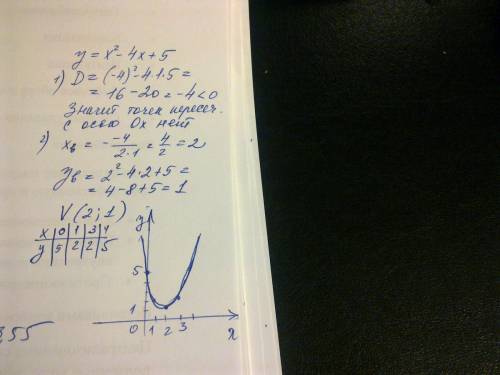 y = x² - 4x + 5
1) D = (-4)² - 4·1·5 =
= 16 - 20 = -4 < 0
Значит точек пересеч.
с осью Ox нет
2) xв = - -4/2·1 = 4/2 = 2
yв = 2² - 4·2 + 5 =
= 4 - 8 + 5 = 1
V (2; 1)
x | 0 | 1 | 3 | 4
y | 5 | 2 | 2 | 5
y
5
1
0 1 2 3 x